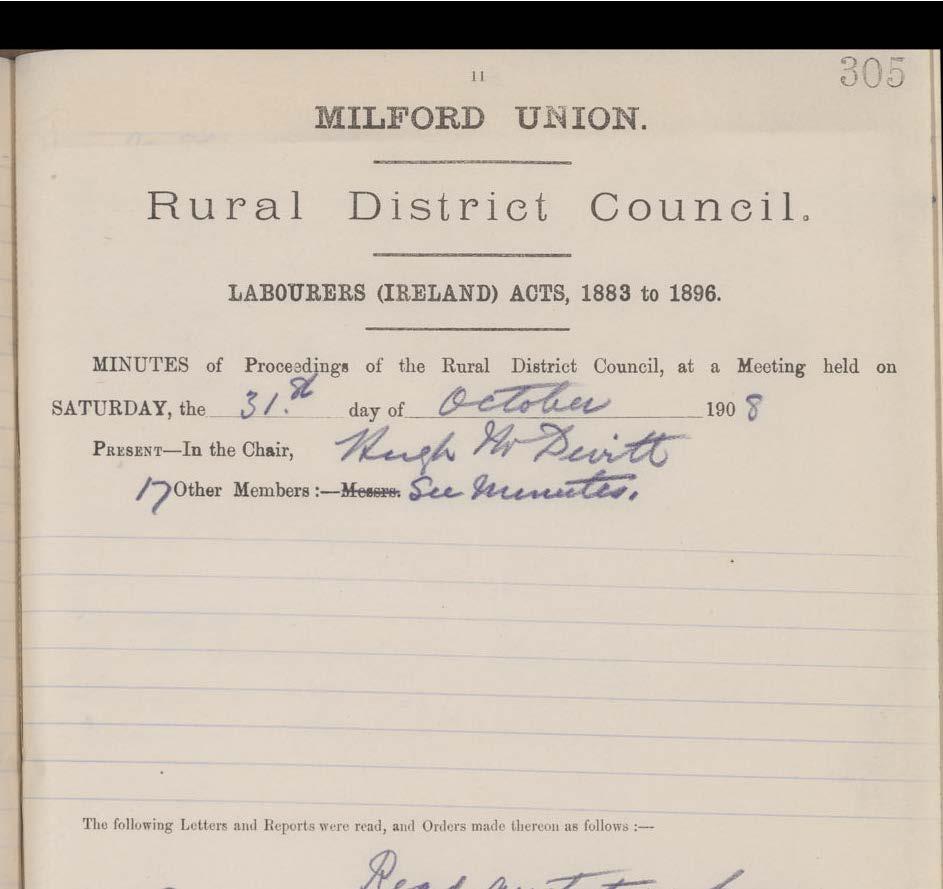 11
305
MILFORD UNION.
Rural District Council.
LABOURERS (IRELAND) ACTS, 1883 to 1896.
MINUTES of Proceedings of the Rural District Council, at a Meeting held on
SATURDAY, the 31.st day of October 1908
PRESENT—In the Chair, Hugh McDevitt
17 Other Members :—Messrs. See Minutes.
The following Letters and Reports were read, and Orders made thereon as follows :—
Read